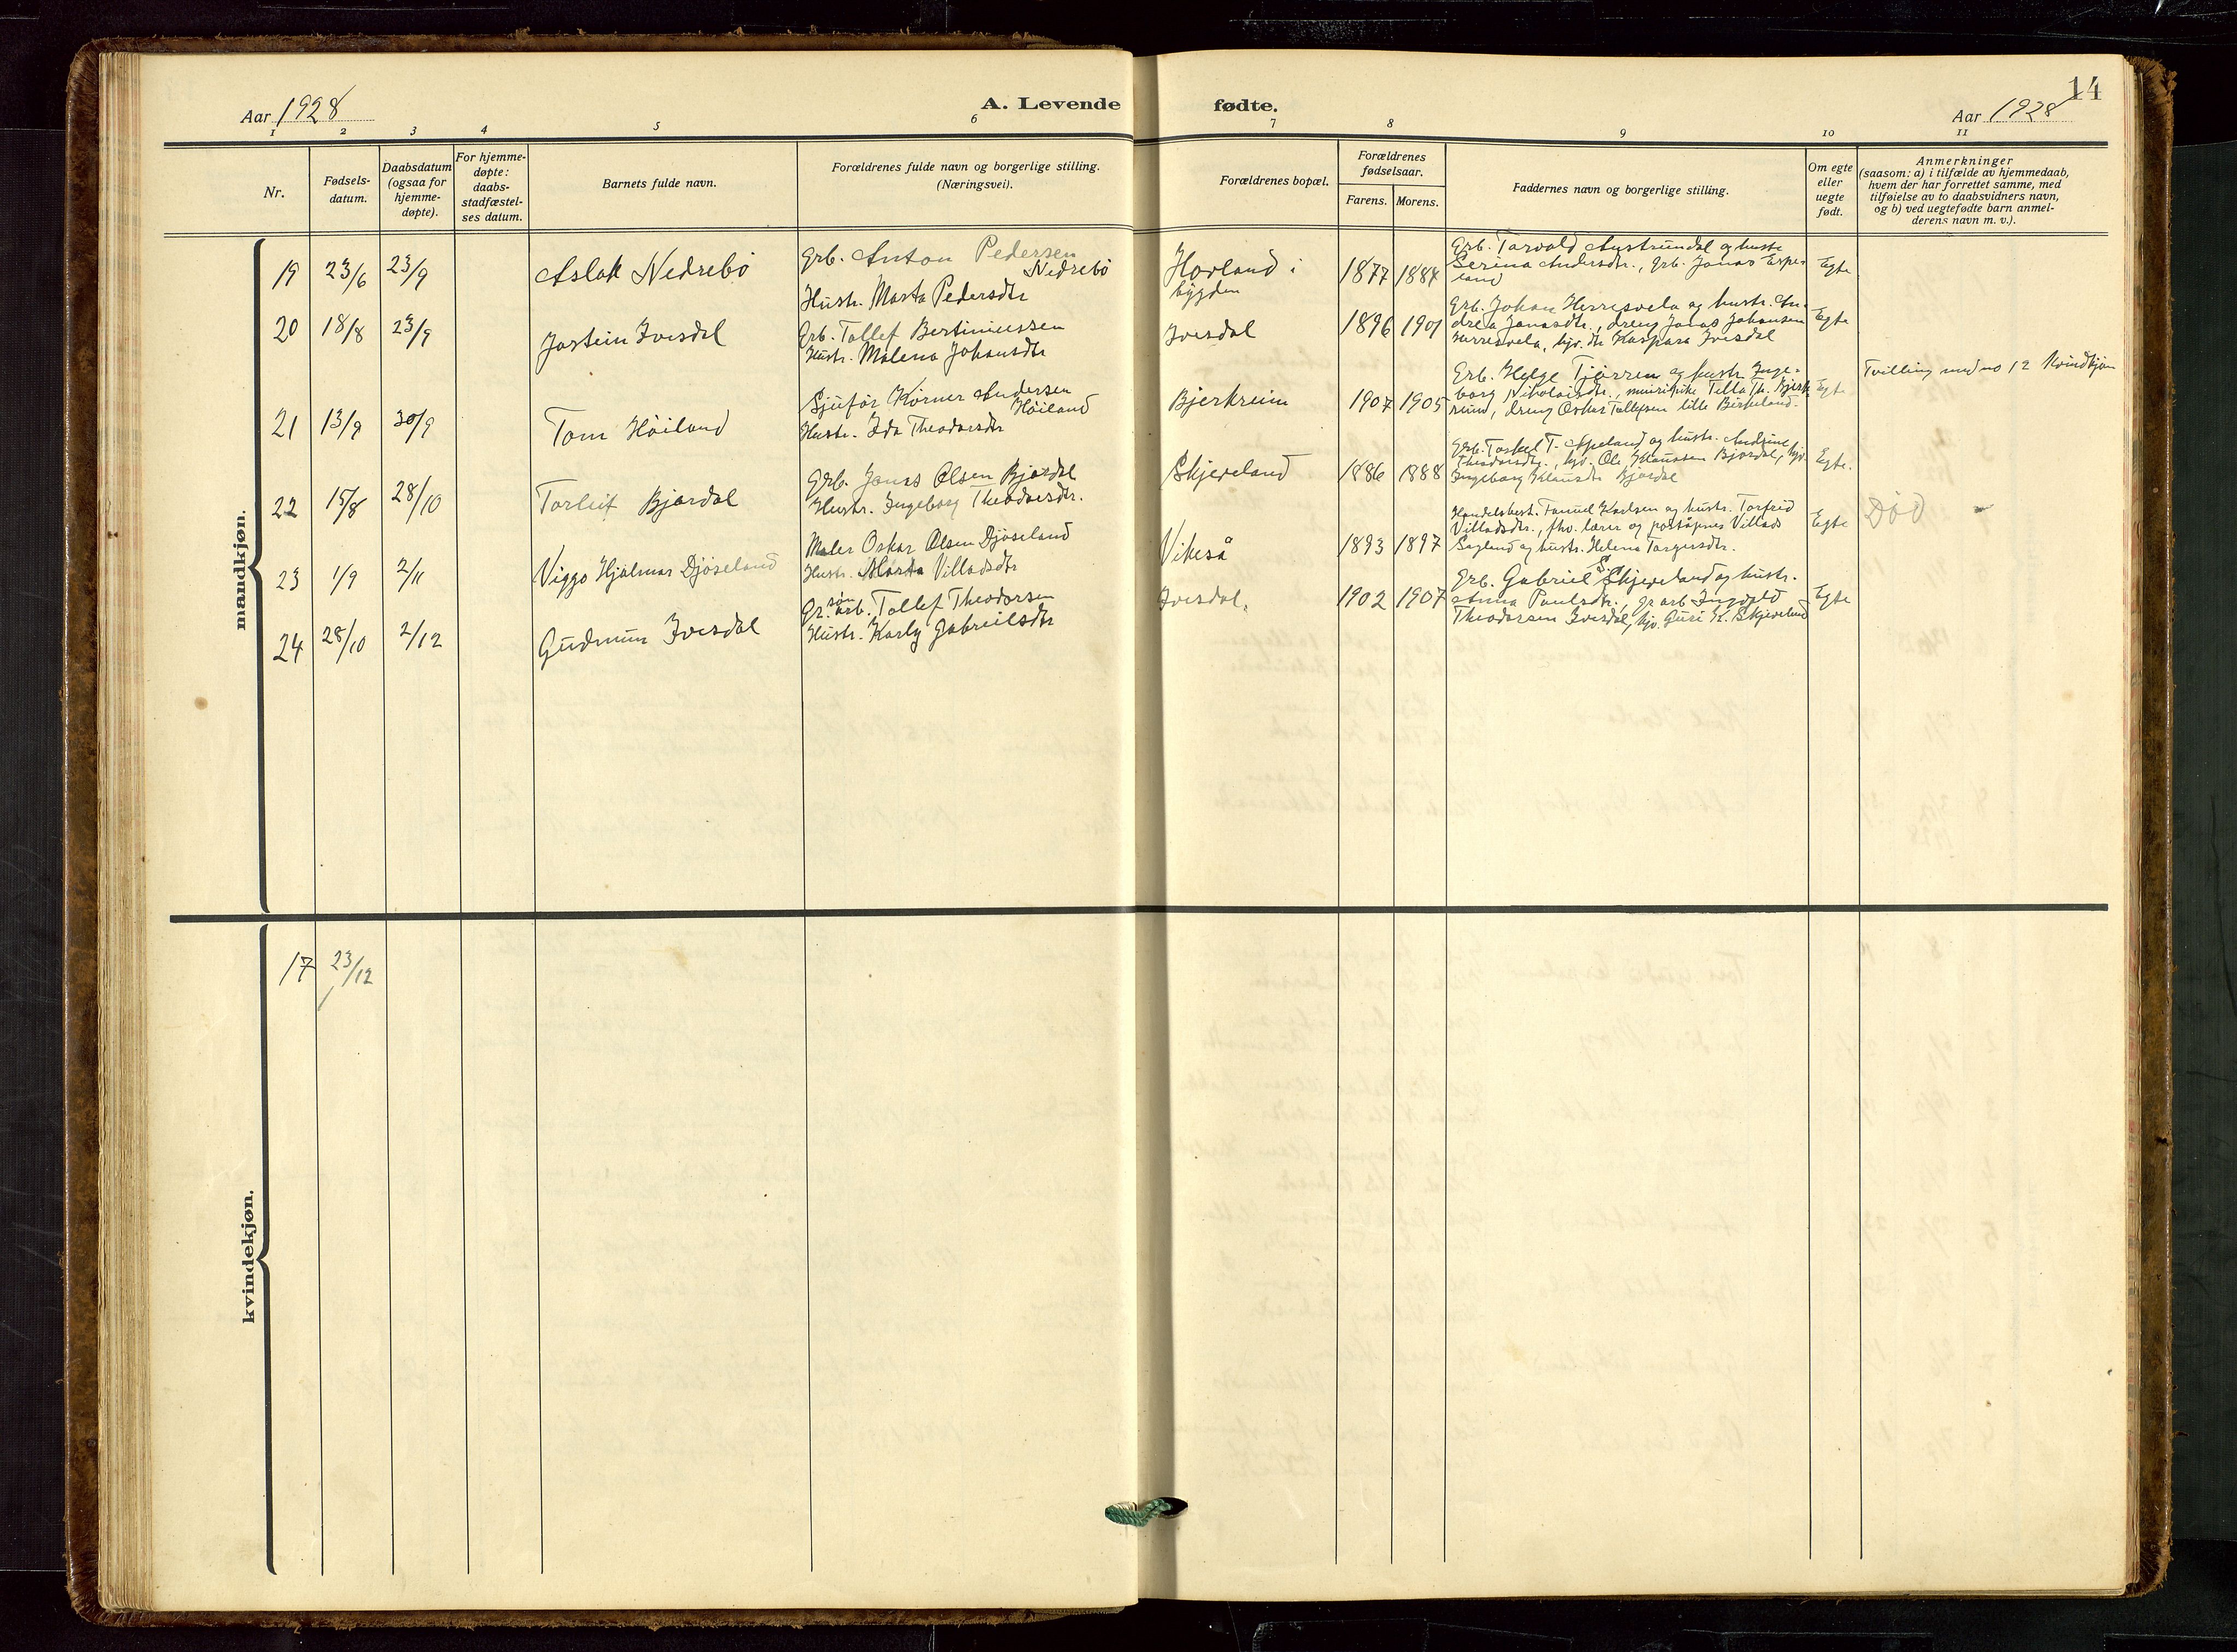 14
Aar 1928
A. Levende fødte.
Aar 1928
1 2 3 4 5 6 7 8 9 10 11
Nr.
Fødsels-
datum.
Daabsdatum
(ogsaa for
hjemme-
døpte).
For hjemme-
døpte:
daabs-
stadfæstel-
ses datum.
Barnets fulde navn.
Forældrenes fulde navn og borgerlige stilling.
(Næringsvei).
Forældrenes bopæl.
Forældrenes
fødselsaar.
Farens. Morens.
Faddernes navn og borgerlige stilling.
Om egte
eller
uegte
født.
Anmerkninger
(saasom: a) i tilfælde av hjemmedaab,
hvem der har forrettet samme, med
tilføielse av to daabsvidners navn,
og b) ved uegtefødte barn anmel-
derens navn m. v.).
mandkjøn.
19 23/6 23/9 Aslak Nedrebö
Grb. Anton Pedersen
Nedrebö
Hustr. Marta Pedersdtr
Hovland i
bygden
1877 1884
Grb. Torvald Austrumdal og hustr
Serina Andersdtr., grb. Jonas Espe-
land
Egte
20 18/8 23/9 Jostein Ivesdal
Grb. Tollef Bertiniussen
Hustr. Malena Johansdtr
Ivesdal
1896 1901
Grb. Johan Herresvela og hustr. An-
drea Jonasdtr., dreng Jonas Johansen
Herresvela, hjv. dtr Kaspara Ivesdal
Egte
21 13/9 30/9 Tom Höiland
Sjuför Körner Andersen
Höiland
Hustr. Ida Theodorsdtr
Bjerkreim
1907 1905
Grb. Helge Tjörren og hustr. Inge-
borg Nikolaisdtr., Tilla Th. Bjerk-
reim, dreng Oskar Tollefsen lille Birkeland.
Egte
Tvilling med no 12 Kvindkjøn
22 15/8 28/10 Torleif Bjordal
Grb. Jonas Olsen Bjordal
Hustr. Ingeborg Theodorsdtr.
Skjeveland
1886 1888
Grb. Torkel T. Apeland og hustr. Andrine
Theodorsdtr., hjv. Ole Klaussen Bjordal, hjv.
Ingeborg Klausdtr Bjordal
Egte.
23 1/9 2/11 Viggo Hjalmar Djöseland
Maler Oskar Olsen Djöseland
Hustr. Marta Villadsdtr
Vikeså
1893 1897
Handelsbest. Karlsen og hustr. Torfrid
Villadsdtr., fhv. lærer og poståpner Villads
Sagland og hustr. Helena Torgersdtr.
Egte
Död
24 28/10 2/12 Gudmun Ivesdal
søn
Gr. arb. Tollef Theodorsen
Hustr. Karly Gabrielsdtr
Ivesdal.
1902 1907
Grb. Gabriel S. Skjeveland og hustr.
Anna Paulsdtr., gr arb Ingvald
Theodorsen Ivesdal, hjv. Guri K. Skjeveland
Egte
kvindekjøn.
17 23/12